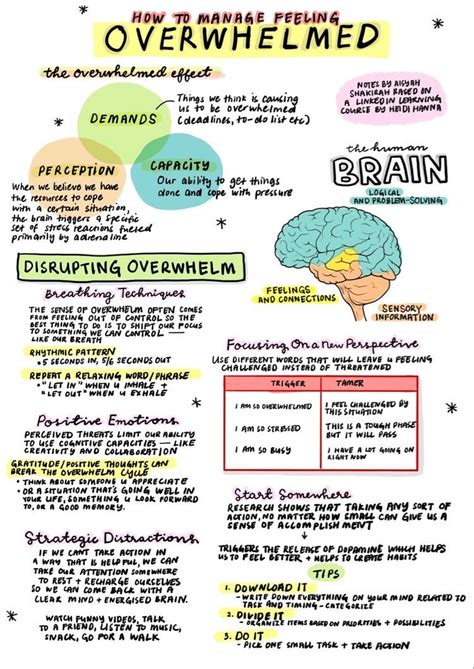 HOW TO MANAGE FEELING
OVERWHELMED
the overwhelmed effect
Things we think is causing
us to be overwhelmed
(deadlines, to-do list etc)
NOTES BY AISYAH
SHAKIRAH BASED ON
A LINKEDIN LEARNING
COURSE BY HEIDI HANNA
DEMANDS
PERCEPTION
When we believe we have
the resources to cope
with a certain situation,
the brain triggers a specific
set of stress reactions fueled
primarily by adrenaline
CAPACITY
Our ability to get things
done and cope with pressure
the human
BRAIN
LOGICAL
AND PROBLEM-SOLVING
FEELINGS
AND CONNECTIONS
SENSORY
INFORMATION
DISRUPTING OVERWHELM
Breathing Techniques
THE SENSE OF OVERWHELM OFTEN COMES
FROM FEELING OUT OF CONTROL SO THE
BEST THING TO DO IS TO SHIFT OUR FOCUS
TO SOMETHING WE CAN CONTROL —
LIKE OUR BREATH
RHYTHMIC PATTERN
• 5 SECONDS IN, 5/6 SECONDS OUT
REPEAT A RELAXING WORD/PHRASE
• "LET IN" WHEN U INHALE +
"LET OUT" WHEN U EXHALE
Positive Emotions
PERCEIVED THREATS LIMIT OUR ABILITY
TO USE COGNITIVE CAPACITIES — LIKE
CREATIVITY AND COLLABORATION
GRATITUDE/POSITIVE THOUGHTS CAN
BREAK THE OVERWHELM CYCLE
• THINK ABOUT SOMEONE U APPRECIATE
• OR A SITUATION THAT'S GOING WELL IN
YOUR LIFE, SOMETHING U LOOK FORWARD
TO, OR A GOOD MEMORY.
Strategic Distractions
IF WE CANT TAKE ACTION IN
A WAY THAT IS HELPFUL, WE CAN
TAKE OUR ATTENTION SOMEWHERE
TO REST + RECHARGE OURSELVES
SO WE CAN COME BACK WITH A
CLEAR MIND + ENERGISED BRAIN.
WATCH FUNNY VIDEOS, TALK
TO A FRIEND, LISTEN TO MUSIC,
SNACK, GO FOR A WALK
Focusing On a New Perspective
USE DIFFERENT WORDS THAT WILL LEAVE U FEELING
CHALLENGED INSTEAD OF THREATENED
TRIGGER TAMER
I AM SO OVERWHELMED I FEEL CHALLENGED BY
THIS SITUATION
I AM SO STRESSED THIS IS A TOUGH PHASE
BUT IT WILL PASS
I AM SO BUSY I HAVE A LOT GOING ON
RIGHT NOW
Start Somewhere
RESEARCH SHOWS THAT TAKING ANY SORT OF
ACTION, NO MATTER HOW SMALL CAN GIVE US A
SENSE OF ACCOMPLISHMENT
TRIGGERS THE RELEASE OF DOPAMINE WHICH HELPS
US TO FEEL BETTER + HELPS TO CREATE HABITS
TIPS
1. DOWNLOAD IT
- WRITE DOWN EVERYTHING ON YOUR MIND RELATED TO
TASK AND TIMING - CATEGORIZE
2. DIVIDE IT
- ORGANIZE ITEMS BASED ON PRIORITIES + POSSIBILITIES
3. DO IT
- PICK ONE SMALL TASK + TAKE ACTION